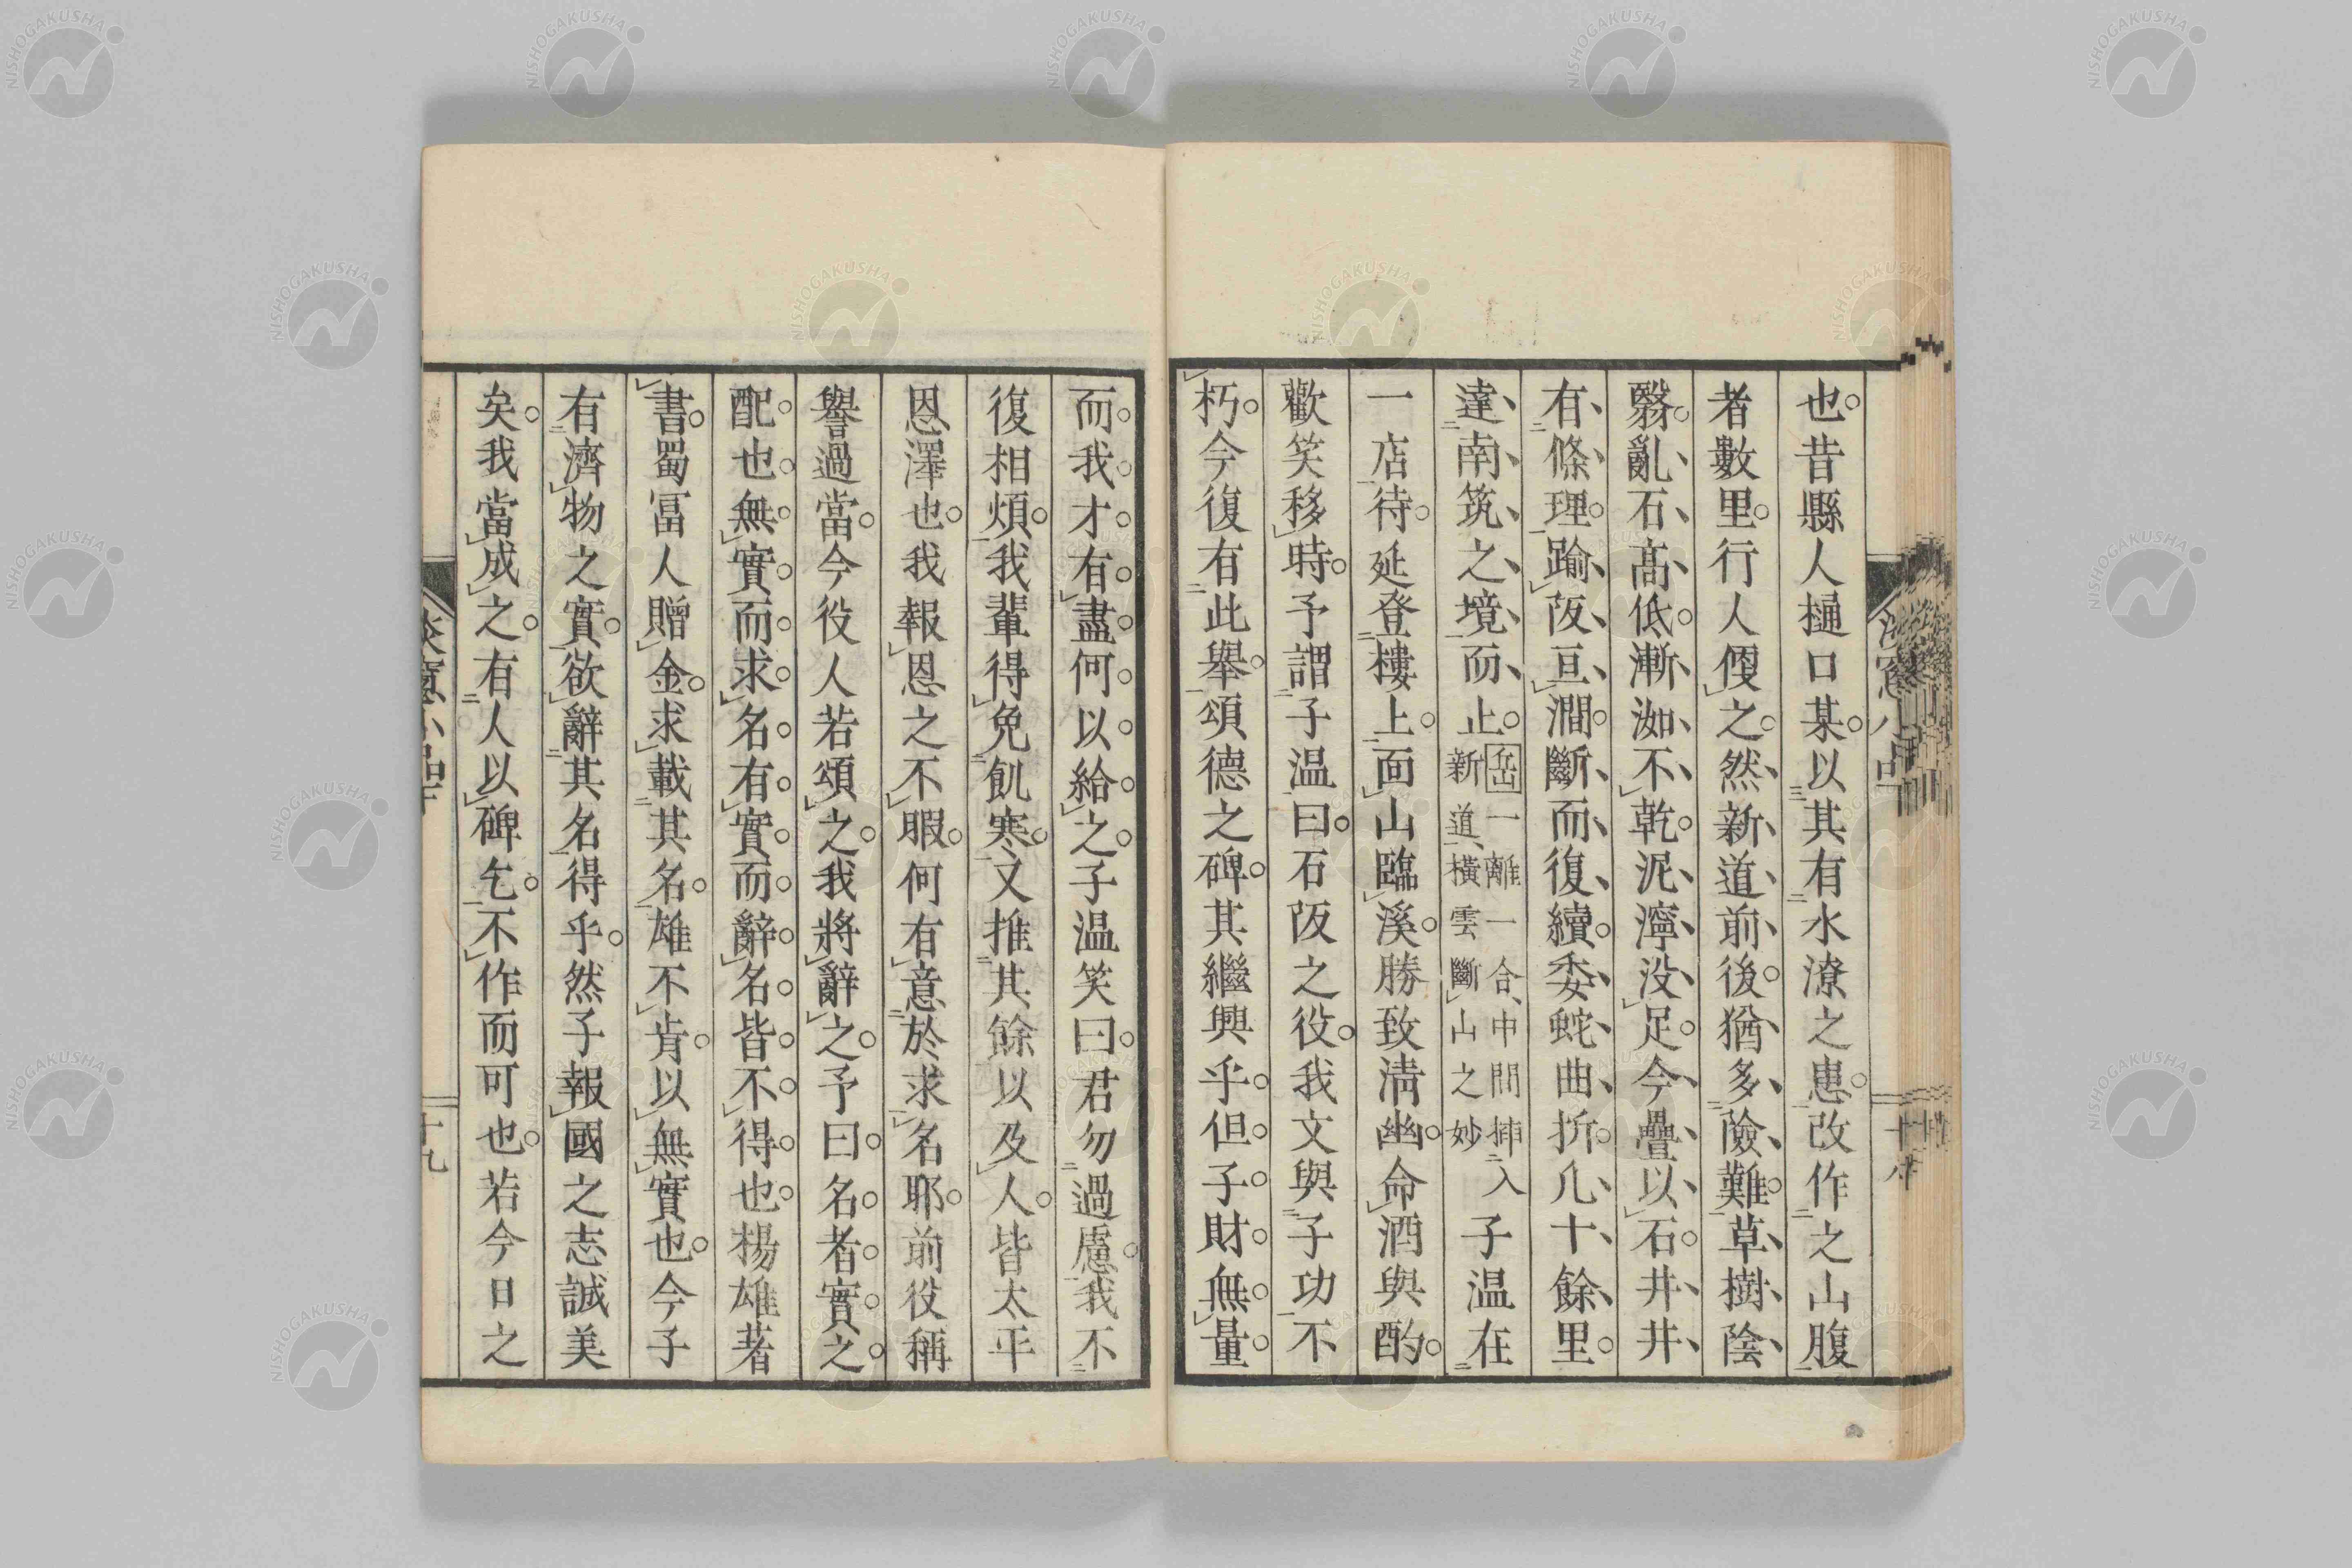 也。昔縣人樋口某。以其有水潦之患。改作之山腹
者數里。行人偃之。然、新、道、前、後。猶、多、險、難。草、樹、陰、
翳。亂、石、高、低。漸、洳、不、乾。泥、濘、没、足。今、疊、以、石。井、井、
有、條、理。踰、阪、亘、澗。斷、而、復、續。委、蛇、曲、折。几、十、餘、里。
達、南、筑、之、境、而、止。嵒一離一合、中間挿入
新道、橫雲斷山之妙
子温在
一店待。延登樓上。面山臨溪。勝致淸幽。命酒與酌。
歡笑移時。予謂子温曰。石阪之役。我文與子功不
朽。今復有此舉。頌德之碑。其繼興乎。但子財無量。
而我才有盡。何以給之。子温笑曰。君勿過慮。我不
復相煩。我輩得免飢寒。又推其餘以及人。皆太平
恩澤也。我報恩之不暇。何有意於求名耶。前役稱
譽過當。今役人若頌之。我將辭之。予曰。名者。實之。
配也。無實而求名。有實而辭名。皆不得也。揚雄著
書。蜀冨人贈金。求載其名。雄不肯。以無實也。今子
有濟物之實。欲辭其名得乎。然子報國之志誠美
矣。我當成之。有人以碑乞。不作而可也。若今日之
十九
NISHOGAKUSHA